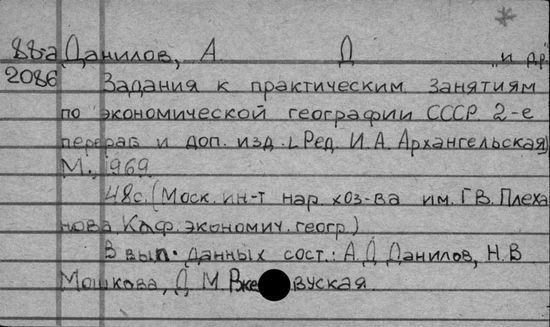 88-а Данилов, А Д "и др"
2086 Задания к практическим занятиям
по экономической географии СССР. 2-е
перераб и доп. изд. [Ред. И.А. Архангельская]
М., 1969.
48с. (Моск. ин-т нар. хоз-ва им. Г.В. Плеха
нова. Каф. экономич. геогр.)
В вып. данных сост.: А.Д. Данилов, Н.В
Мошкова, Д.М.